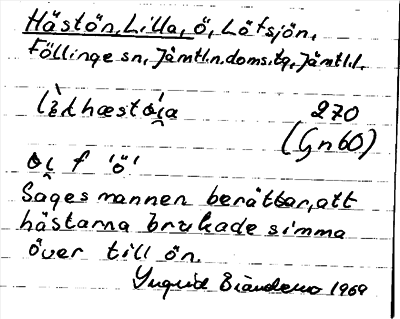 Hästön, Lilla, ö, Lötsjön,
Föllinge sn, Jämtl.n.doms.tg, Jämtl.l.
270
(Gn60)
f 'ö'
Sagesmannen berättar, att
hästarna brukade simma
över till ön.
Yngrid 1969